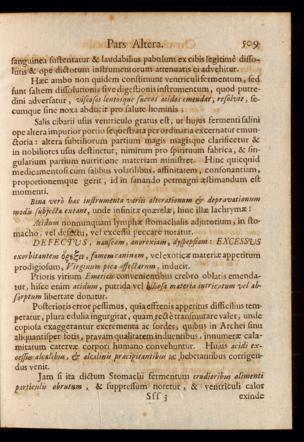 Pars Altera. 509
sanguinea sustentatur & laudabilius pabulum ex cibis legitimè disso-
lutis & ope dictorum instrumentorum attenuatis ei advehitur.
Hæc ambo non quidem constituunt ventriculi fermentum, sed
sunt saltem dissolutionis sive digestionis instrumentum, quod putre-
dini adversatur, viscosos lentosque succos acidos emendat, resolvit, se-
cumque sine noxa abducit pro salute hominis;
Salis cibarii usus ventriculo gratus est, ut hujus fermenti salini
ope altera impurior portio sequestrata per ordinaria excernatur emun-
ctoria: altera subtiliorum partium magis magisque clarificetur &
in nobiliores usus destinetur, nimirum pro spirituum fabrica, & sin-
gularium partium nutritione materiam ministret. Hinc quicquid
medicamentosi cum salibus volatilibus, affinitatem, consonantiam,
proportionemque gerit, id in sanando permagni æstimandum est
momenti.
Bina verò hæc instrumenta variis alterationum & depravationum
modis subjecta extant, unde infinitæ querelæ, hinc illæ lachrymæ:
Acidum nonnunquam lymphæ stomachalis adjutorium, in sto-
macho, vel defectu, vel excessu peccare notatur.
DEFECTUS, nauseam, anorexiam, dyspepsiam: EXCESSUS
exorbitantem famem caninam, vel exoticæ materiæ appetitum
prodigiosum, Virginum pica affectarum, inducit.
Prioris virium Emeticis convenientibus crebro oblatis emenda-
tur, hisce enim acidum, putrida vel biliosa materia intricatum vel ab-
sorptum libertate donatur.
Posterioris error pessimus, quia effrenis appetitus difficilius tem-
peratur, plura edulia ingurgitat, quam rectè transmutare valet, unde
copiosa exaggerantur excrementa ac sordes, quibus in Archei sinu
aliquantisper fotis, pravam qualitatem induentibus, innumeræ cala-
mitatum catervæ corpori humano convehuntur. Hujus acidi ex-
cessus alcalibus, & alcalinis præcipitantibus ac hebetantibus corrigen-
dus venit.
Jam si ita dictum Stomachi fermentum crudioribus alimenti
particulis obrutum, & suppressum notetur, & ventriculi calor
Sss 3 exinde